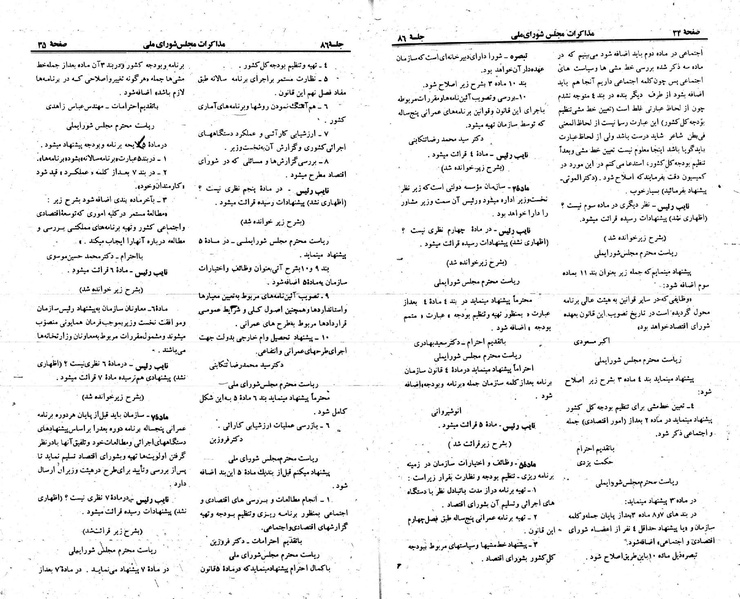 صفحهٔ ۳۴
مذاکرات مجلس شورای ملی
جلسهٔ ۸۶
اجتماعی در ماده دوم باید اضافه شود می‌بینیم که در
ماده سه ذکر شده بررسی خط مشی ها وسیاست های
اجتماعی پس چون کلمه اجتماعی داریم آنجا هم باید
اضافه بشود از طرف دیگر بنده در بند ۴ متوجه نشدم
چون از لحاظ عبارتی غلط است (تعیین خط مشی تنظیم
بودجه کل کشور) این عبارت رسا نیست از لحاظ المعنی
فی بطن شاعر شاید درست باشد ولی از لحاظ عبارت
باید گویا باشد اینجا معلوم نیست تعیین خط مشی وبعداً
تنظیم بودجه کل کشور، استدعا می‌کنم در این مورد در
کمیسیون دقت بفرمایند که اصلاح شود. (دکتر الموتی-
پیشنهاد بفرمائید) بسیار خوب.
نایب رئیس- نظر دیگری در ماده سوم نیست ؟
(اظهاری نشد) پیشنهادات رسیده قرائت میشود.
(بشرح زیر خوانده شد)
ریاست محترم مجلس شورایملی
پیشنهاد مینمایم که جمله زیر بعنوان بند ۱۱ بماده
سوم اضافه شود:
«وظایفی که در سایر قوانین به هیئت عالی برنامه
محول گردیده است در تاریخ تصویب این قانون بعهده
شورای اقتصاد خواهد بود»
اکبر مسعودی
ریاست محترم مجلس شورایملی
پیشنهاد مینماید بند ۴ ماده ۳ بشرح زیر اصلاح
شود:
۴- تعیین خط مشی برای تنظیم بودجه کل کشور
پیشنهاد مینماید در ماده ۲ بعداز (امور اقتصادی) جمله
و اجتماعی ذکر شود.
باتقدیم احترام
حکمت یزدی
ریاست محترم مجلس شورایملی
در ماده ۳ پیشنهاد مینماید:
در بند های ۷و۸ ماده ۳بعداز پایان جمله وکلمه
سازمان و«با پیشنهاد حداقل ۴ نفر از اعضاء شورای
اقتصادی و اجتماعی» اضافه شود؟
تبصره ذیل ماده ۱۰ باین طریق اصلاح شود.
تبصره - شورا دارای دبیرخانه ای است که سازمان
عهده دار آن خواهد بود.
بند ۱۰ ماده ۳ بشرح زیر اصلاح شود.
۱۰- بررسی وتصویب آئین‌نامه ها ومقررات مربوطه
باجرای این قانون وقوانین برنامه های عمرانی پنجساله
که توسط سازمان تهیه میشود.
دکتر سید محمد رضا تنکابنی
نایب رئیس- ماده ۴ قرائت میشود.
(بشرح زیر خوانده شد)
ماده۴- سازمان مؤسسه دولتی است که زیر نظر
نخست وزیر اداره میشود ورئیس آن سمت وزیر مشاور
را دارا خواهد بود .
نایب رئیس- در مادهٔ چهارم نظری نیست ؟
(اظهاری نشد) پیشنهادات رسیده قرائت میشود.
(بشرح زیر خوانده شد)
ریاست محترم مجلس شورایملی
محترماً پیشنهاد مینماید در بند ۴ مادهٔ ۴ بعداز
عبارت « بمنظور تهیه وتنظیم بودجه » عبارت « و متمم
بودجه » اضافه شود .
باتقدیم احترام - دکتر سعید بهادری
ریاست محترم مجلس شورایملی
احتراماً پیشنهاد مینماید در مادهٔ ۴ قانون سازمان
برنامه بعدازکلمه سازمان جمله «برنامه وبودجه»اضافه
شود.
انوشیروانی
نایب رئیس- مادهٔ ۵ قرائت میشود.
(بشرح زیر قرائت شد )
ماده۵- وظائف و اختیارات سازمان در زمینه
برنامه ریزی - تنظیم بودجه و نظارت بقرار زیر است :
۱- تهیه برنامه دراز مدت باتبادل نظر با دستگاه
های اجرائی وتسلیم آن بشورای اقتصاد.
۲- تهیه برنامه عمرانی پنج ساله طبق فصل چهارم
این قانون .
۳- پیشنهاد خط مشیها وسیاستهای مربوط ببودجه
کل کشور بشورای اقتصاد .
جلسهٔ ۸۶
مذاکرات مجلس شورای ملی
صفحهٔ ۳۵
۴- تهیه و تنظیم بودجه کل کشور .
۵- نظارت مستمر براجرای برنامه سالانه طبق
مفاد فصل نهم این قانون .
۶- هم آهنگ نمودن روشها وبرنامه‌های آماری
کشور .
۷- ارزشیابی کارآئی و عملکرد دستگاههای
اجرائی کشور وگزارش آن به نخست وزیر .
۸- بررسی گزارشها و مسائلی که در شورای
اقتصاد مطرح میشود .
نایب رئیس- در مادهٔ پنجم نظری نیست ؟
(اظهاری نشد) پیشنهادات رسیده قرائت میشود.
(بشرح زیر خوانده شد)
ریاست محترم مجلس شورایملی - در مادهٔ ۵
پیشنهاد مینماید.
بند ۹ و۱۰ بشرح آتی بعنوان وظائف واختیارات
سازمان به مادهٔ۵ اضافه شود .
۹- تصویب آئین‌نامه های مربوط به تعیین معیارها
و استانداردها وهمچنین اصول کلی و شرایط عمومی
قراردادها مربوط به طرح های عمرانی .
۱۰- پیشنهاد تحصیل وام خارجی بدولت جهت
اجرای طرحهای عمرانی و انتفاعی.
دکتر سید محمدرضا تنکابنی
ریاست محترم مجلس شورای ملی
محترماً پیشنهاد مینماید بند ۶ ماده ۵ به این شکل
کامل شود .
۶- بازرسی عملیات ارزشیابی کارآئی
دکتر فروزین
ریاست محترم مجلس شورای ملی
پیشنهاد میکنم قبل از بند یک مادهٔ ۵ این بند اضافه
شود .
۱- انجام مطالعات و بررسی های اقتصادی و
اجتماعی بمنظور برنامه ریزی و تنظیم بودجه و تهیه
گزارشهای اقتصادی واجتماعی.
باتقدیم احترامات - دکتر فروزین
ریاست محترم مجلس شورای ملی
باکمال احترام پیشنهاد مینماید که درمادهٔ ۵ قانون
برنامه وبودجه کشور «در بند ۳ آن ماده بعداز جمله خط
مشی ها جمله «و هرگونه تغییر و اصلاحی که در برنامه ها
لازم باشد» اضافه شود .
باتقدیم احترامات - مهندس عباس زاهدی
ریاست محترم مجلس شورایملی
درمادهٔ ۵ لایحه برنامه وبودجه پیشنهاد مینماید.
۱- در بند ۵ عبارت «برنامه سالانه» بشود «برنامه‌ها».
۲- در بند ۷ بعداز کلمه و عملکرد « قید شود
«کارمندان وخود».
۳- به آخر ماده بندی اضافه شود بشرح زیر :
«مطالعهٔ مستمر در کلیه اموری که توسعهٔ اقتصادی
و اجتماعی کشور وتهیه برنامه های مملکتی بررسی و
مطالعه درباره آنها را ایجاب میکند . »
بااحترام - دکتر محمد حسین موسوی
نایب رئیس- مادهٔ ۶ قرائت میشود .
(بشرح زیر خوانده شد)
ماده۶- معاونان سازمان به پیشنهاد رئیس سازمان
و موافقت نخست وزیر بموجب فرمان همایونی منصوب
میشوند ومشمول مقررات مربوط به معاونان وزارتخانه ها
می باشند .
نایب رئیس- در مادهٔ ۶ نظری نیست ؟ (اظهاری
نشد) پیشنهادی هم نرسیده مادهٔ ۷ قرائت میشود.
(بشرح زیر خوانده شد)
ماده۷- سازمان باید قبل از پایان هر دوره برنامه
عمرانی پنجساله برنامه دوره بعد را براساس پیشنهادهای
دستگاههای اجرائی ومطالعات خود وتلفیق آنها با درنظر
گرفتن اولویت‌ها تهیه وبشورای اقتصاد تسلیم نماید تا
پس از بررسی وتأیید برای طرح در هیئت وزیران ارسال
دارد .
نایب رئیس- در مادهٔ ۷ نظری نیست ؟ (اظهاری
نشد) پیشنهادات رسیده قرائت میشود .
(بشرح زیر قرائت شد)
ریاست محترم مجلس شورایملی
در مادهٔ ۷ پیشنهاد می‌نماید . در مادهٔ ۷ بعداز